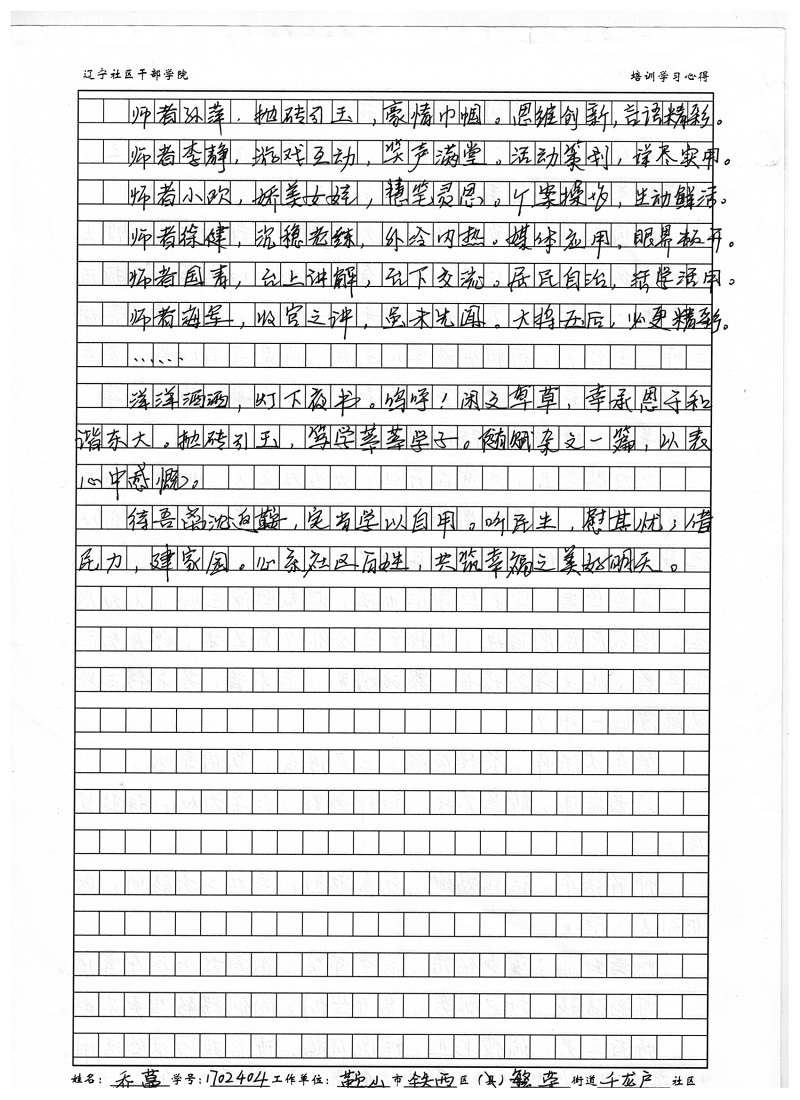 辽宁社区干部学院 培训学习心得
师者孙萍，抛砖引玉，豪情巾帼。思维创新，言语精彩。
师者李静，游戏互动，笑声满堂。活动策划，详尽实用。
师者小欢，娇美女娃，慧笔灵思。个案操坊，生动鲜活。
师者徐健，沉稳老练，外冷内热。媒体应用，眼界板开。
师者国春，台上讲解，台下交流。居民自治，活学活用。
师者海军，收官之讲，虽未先闻。大将压后，必更精彩。
……
洋洋洒洒，灯下夜书。呜呼！闲文草草，幸承恩于和
谐东大。抛砖引玉，笃学莘莘学子。随赋杂文一篇，以表
心中感慨。
待吾离沈返鞍，定当学以自用。听民生，慰其忧；借
民力，建家园。心系社区百姓，共筑幸福之美好明天。
姓名：乔 学号：1702404 工作单位：鞍山市铁西区（县）繁荣街道千龙户社区